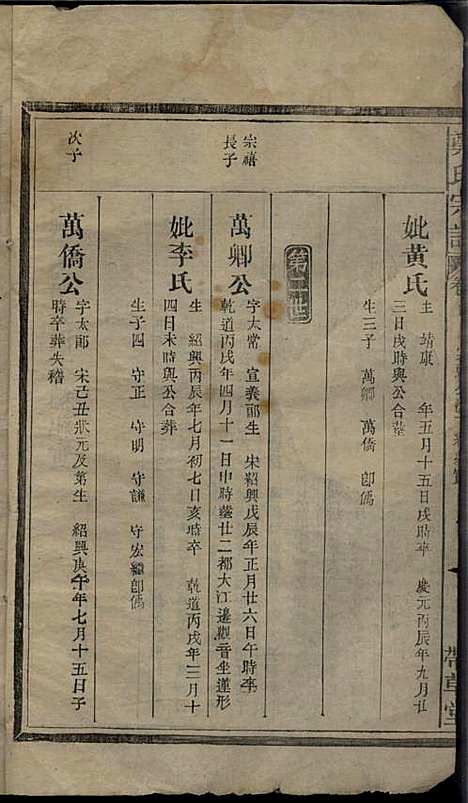 鄭氏宗譜
妣黃氏
生 靖康 年五月十五日戌時卒 慶元丙辰年九月廿
三日戌時與公合塟
生三子 萬卿 萬僑 卽僑
第二世
宗禧
長子
萬卿公
字大常 宣義郎生 宋紹興戊辰年正月廿六日午時卒
乾道丙戌年四月十一日申時塟廿二都大江邊觀音坐蓮形
妣李氏
生 紹興丙辰年七月初七日亥時卒 乾道丙戌年三月十
四日未時與公合葬
生子四 守正 守明 守謙 守宏繼卽僑
次子
萬僑公
字太郎 宋己丑狀元及第生 紹興庚午年七月十五日子
時卒葬失稽
帶草堂